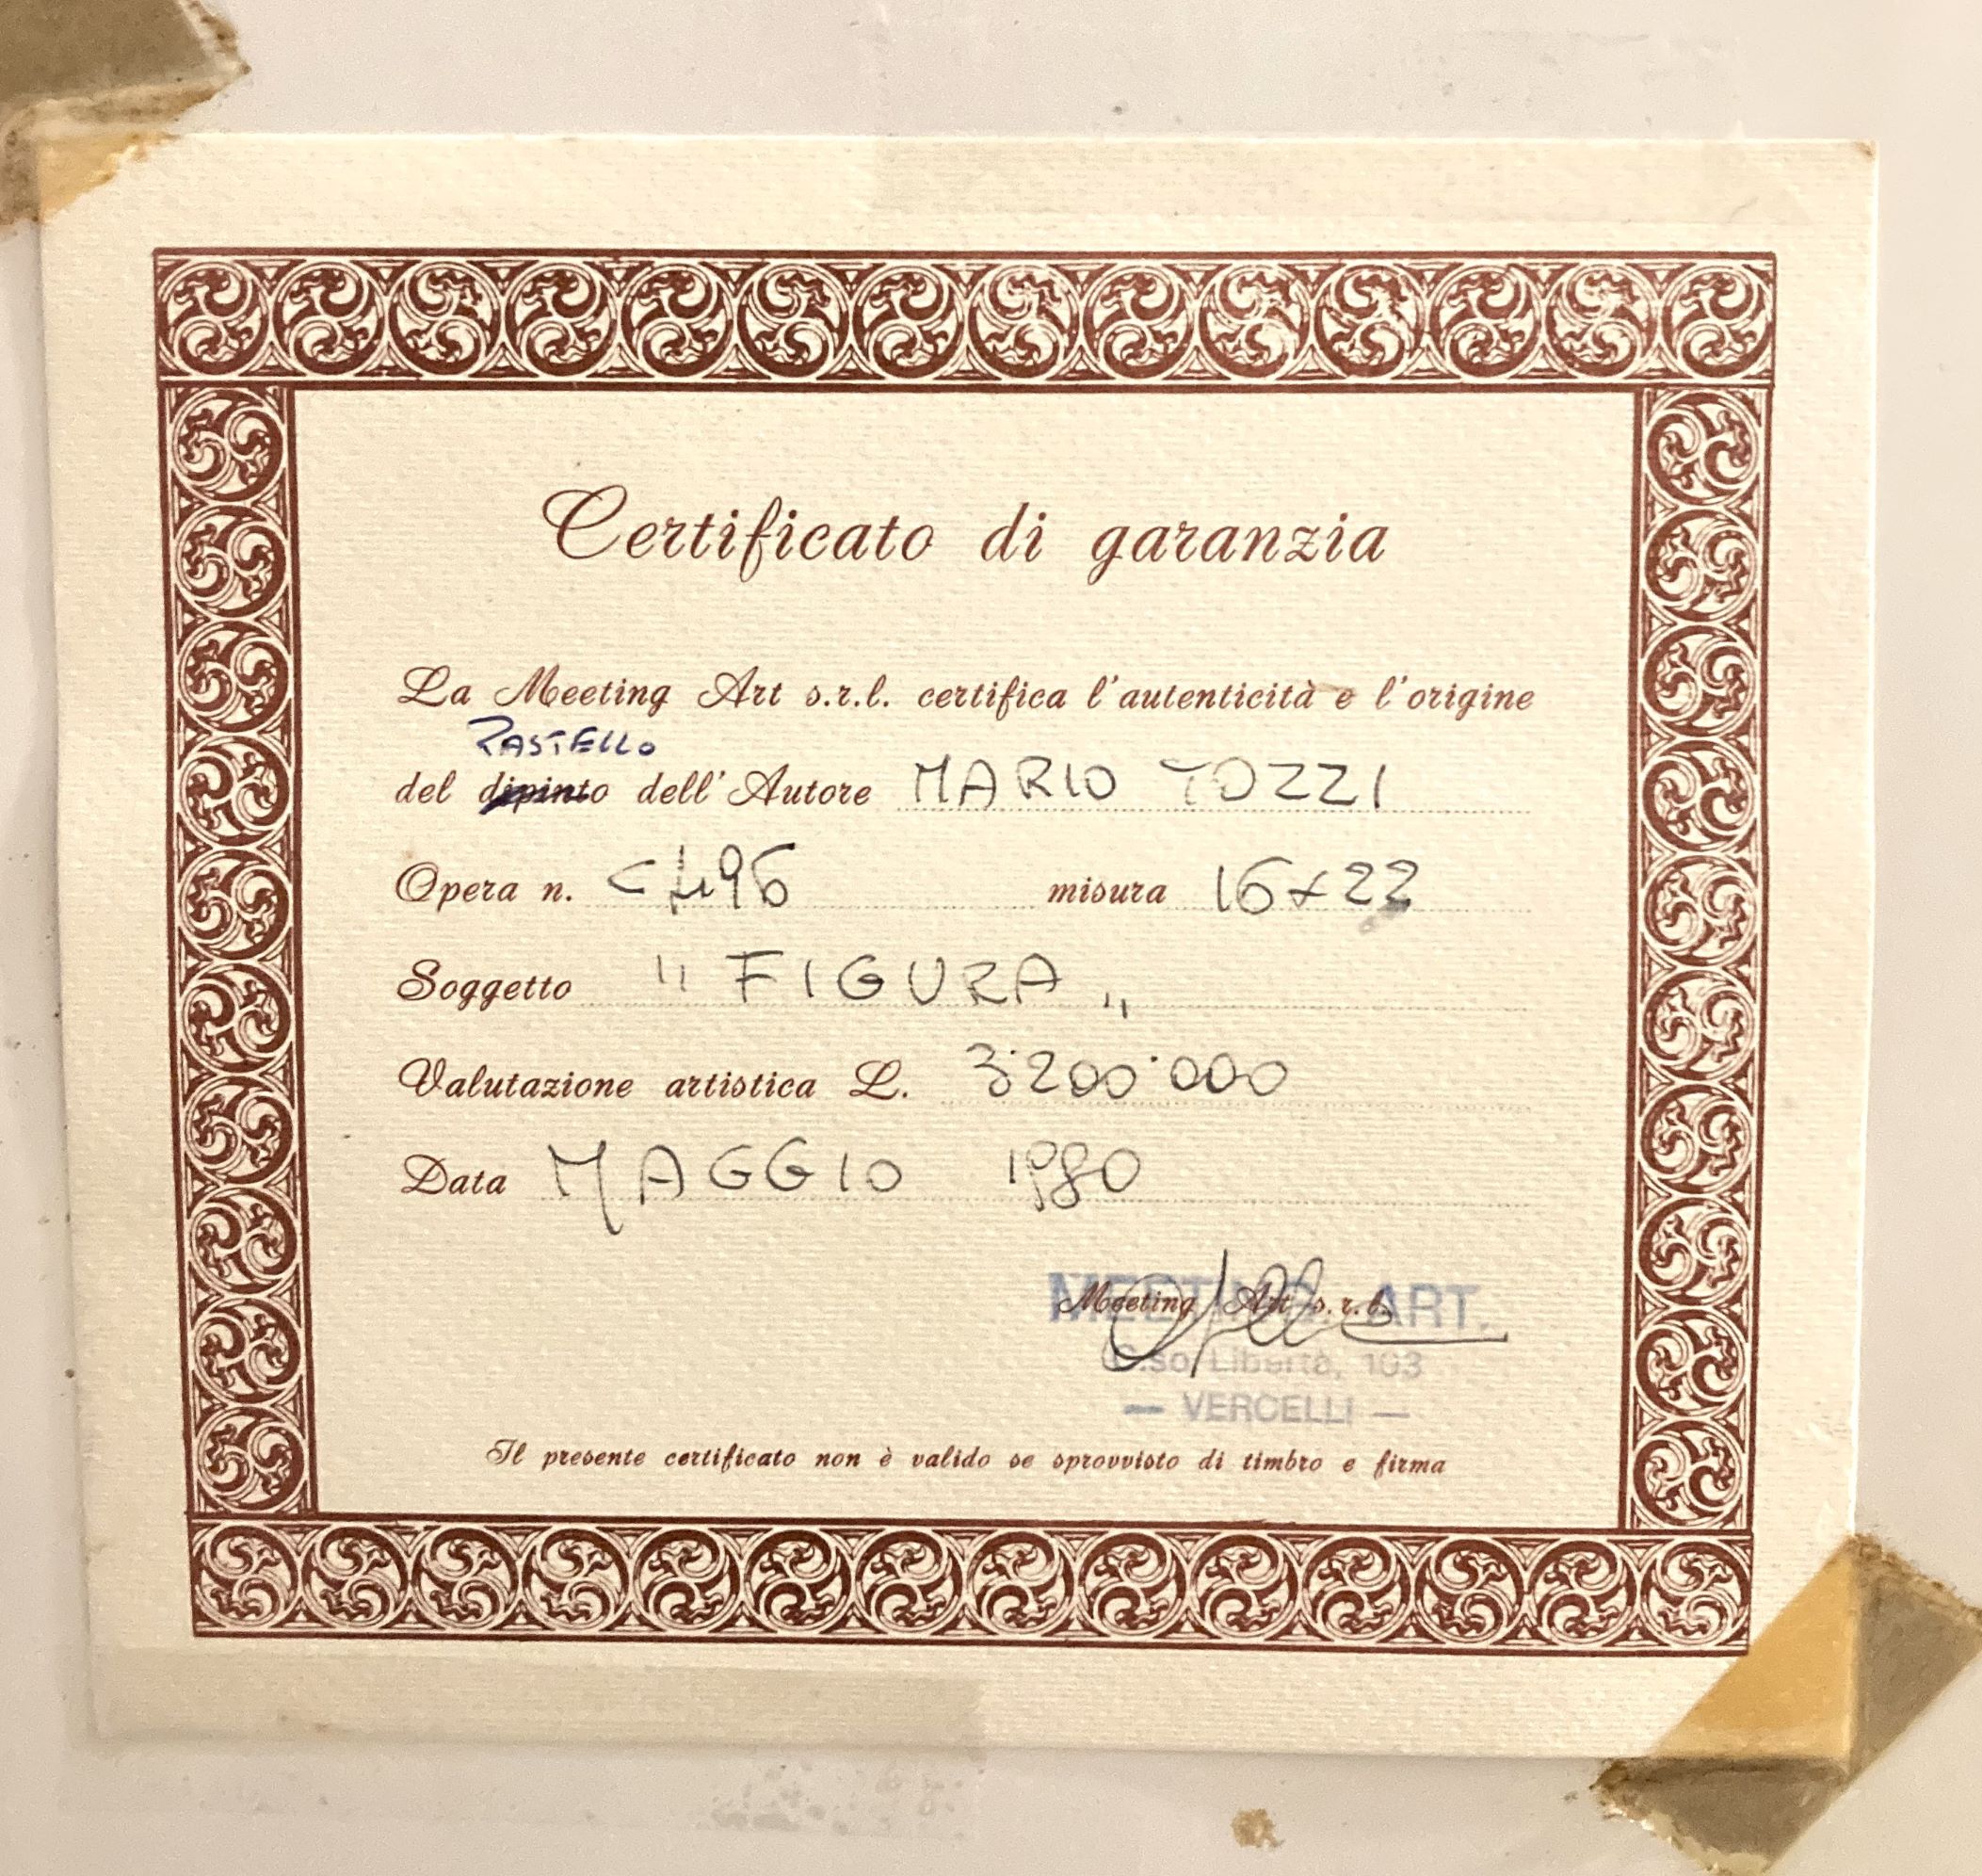 Certificato di garanzia
La Meeting Art s.r.l. certifica l'autenticità e l'origine
PASTELLO
del dipinto dell'Autore MARIO TOZZI
Opera n. C 496 misura 16x22
Soggetto "FIGURA"
Valutazione artistica L. 3'200'000
Data MAGGIO 1980
Meeting Art s.r.l.
MEETING ART.
C.so Libertà, 103
— VERCELLI —
Il presente certificato non è valido se sprovvisto di timbro e firma